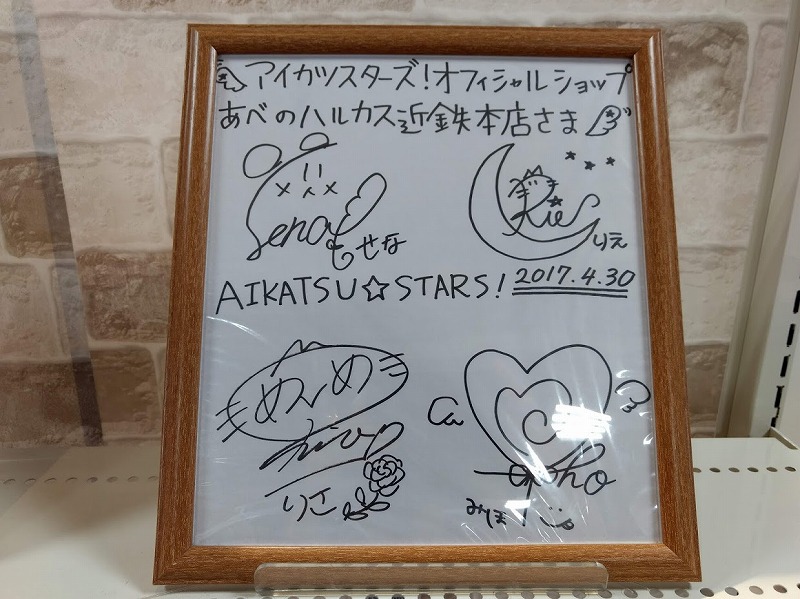 アイカツスターズ!オフィシャルショップ
あべのハルカス近鉄本店さま
Sena せな
Rie りえ
AIKATSU☆STARS! 2017.4.30
りさ
みほ!